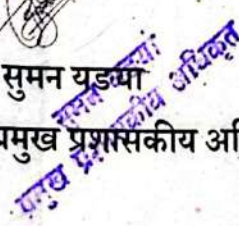 सुमन यडया
प्रमुख प्रशासकीय अधि
सुमन यडया
प्रमुख प्रशासकीय अधिकृत